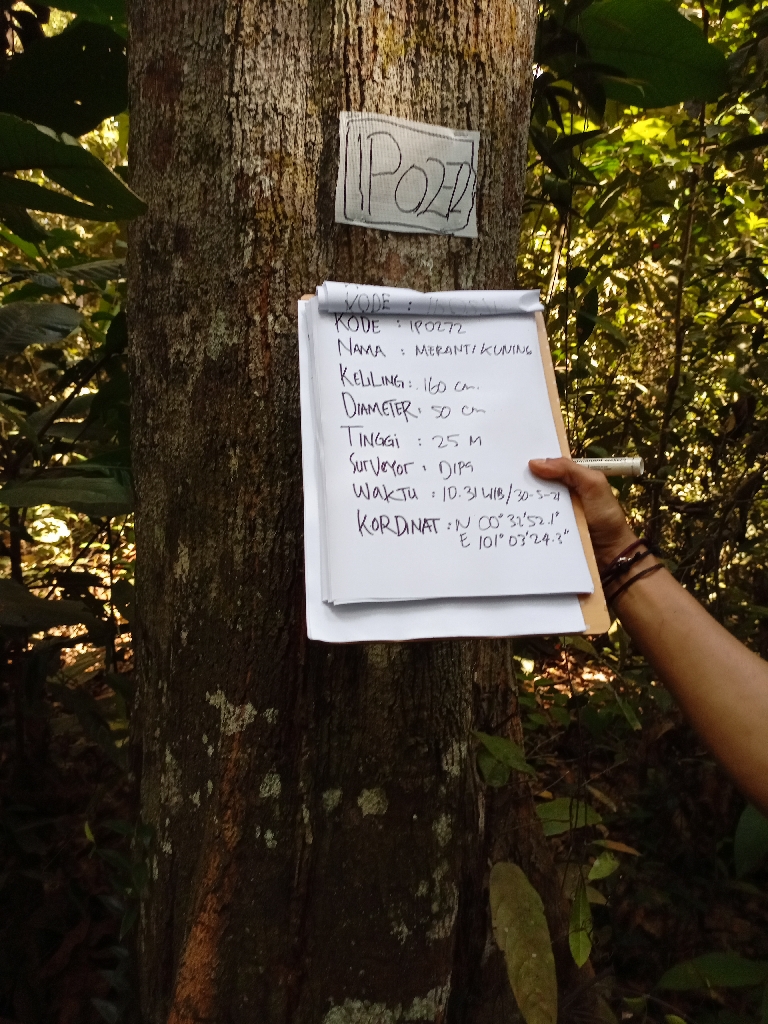 IP0272
KODE :
KODE : IP0272
NAMA : MERANTI KUNING
KELILING : 160 cm.
DIAMETER : 50 cm
TINGGI : 25 M
SURVEYOR : DIPA
WAKTU : 10.31 WIB/30-5-21
KORDINAT : N 00° 32' 52.1"
E 101° 03' 24.3"